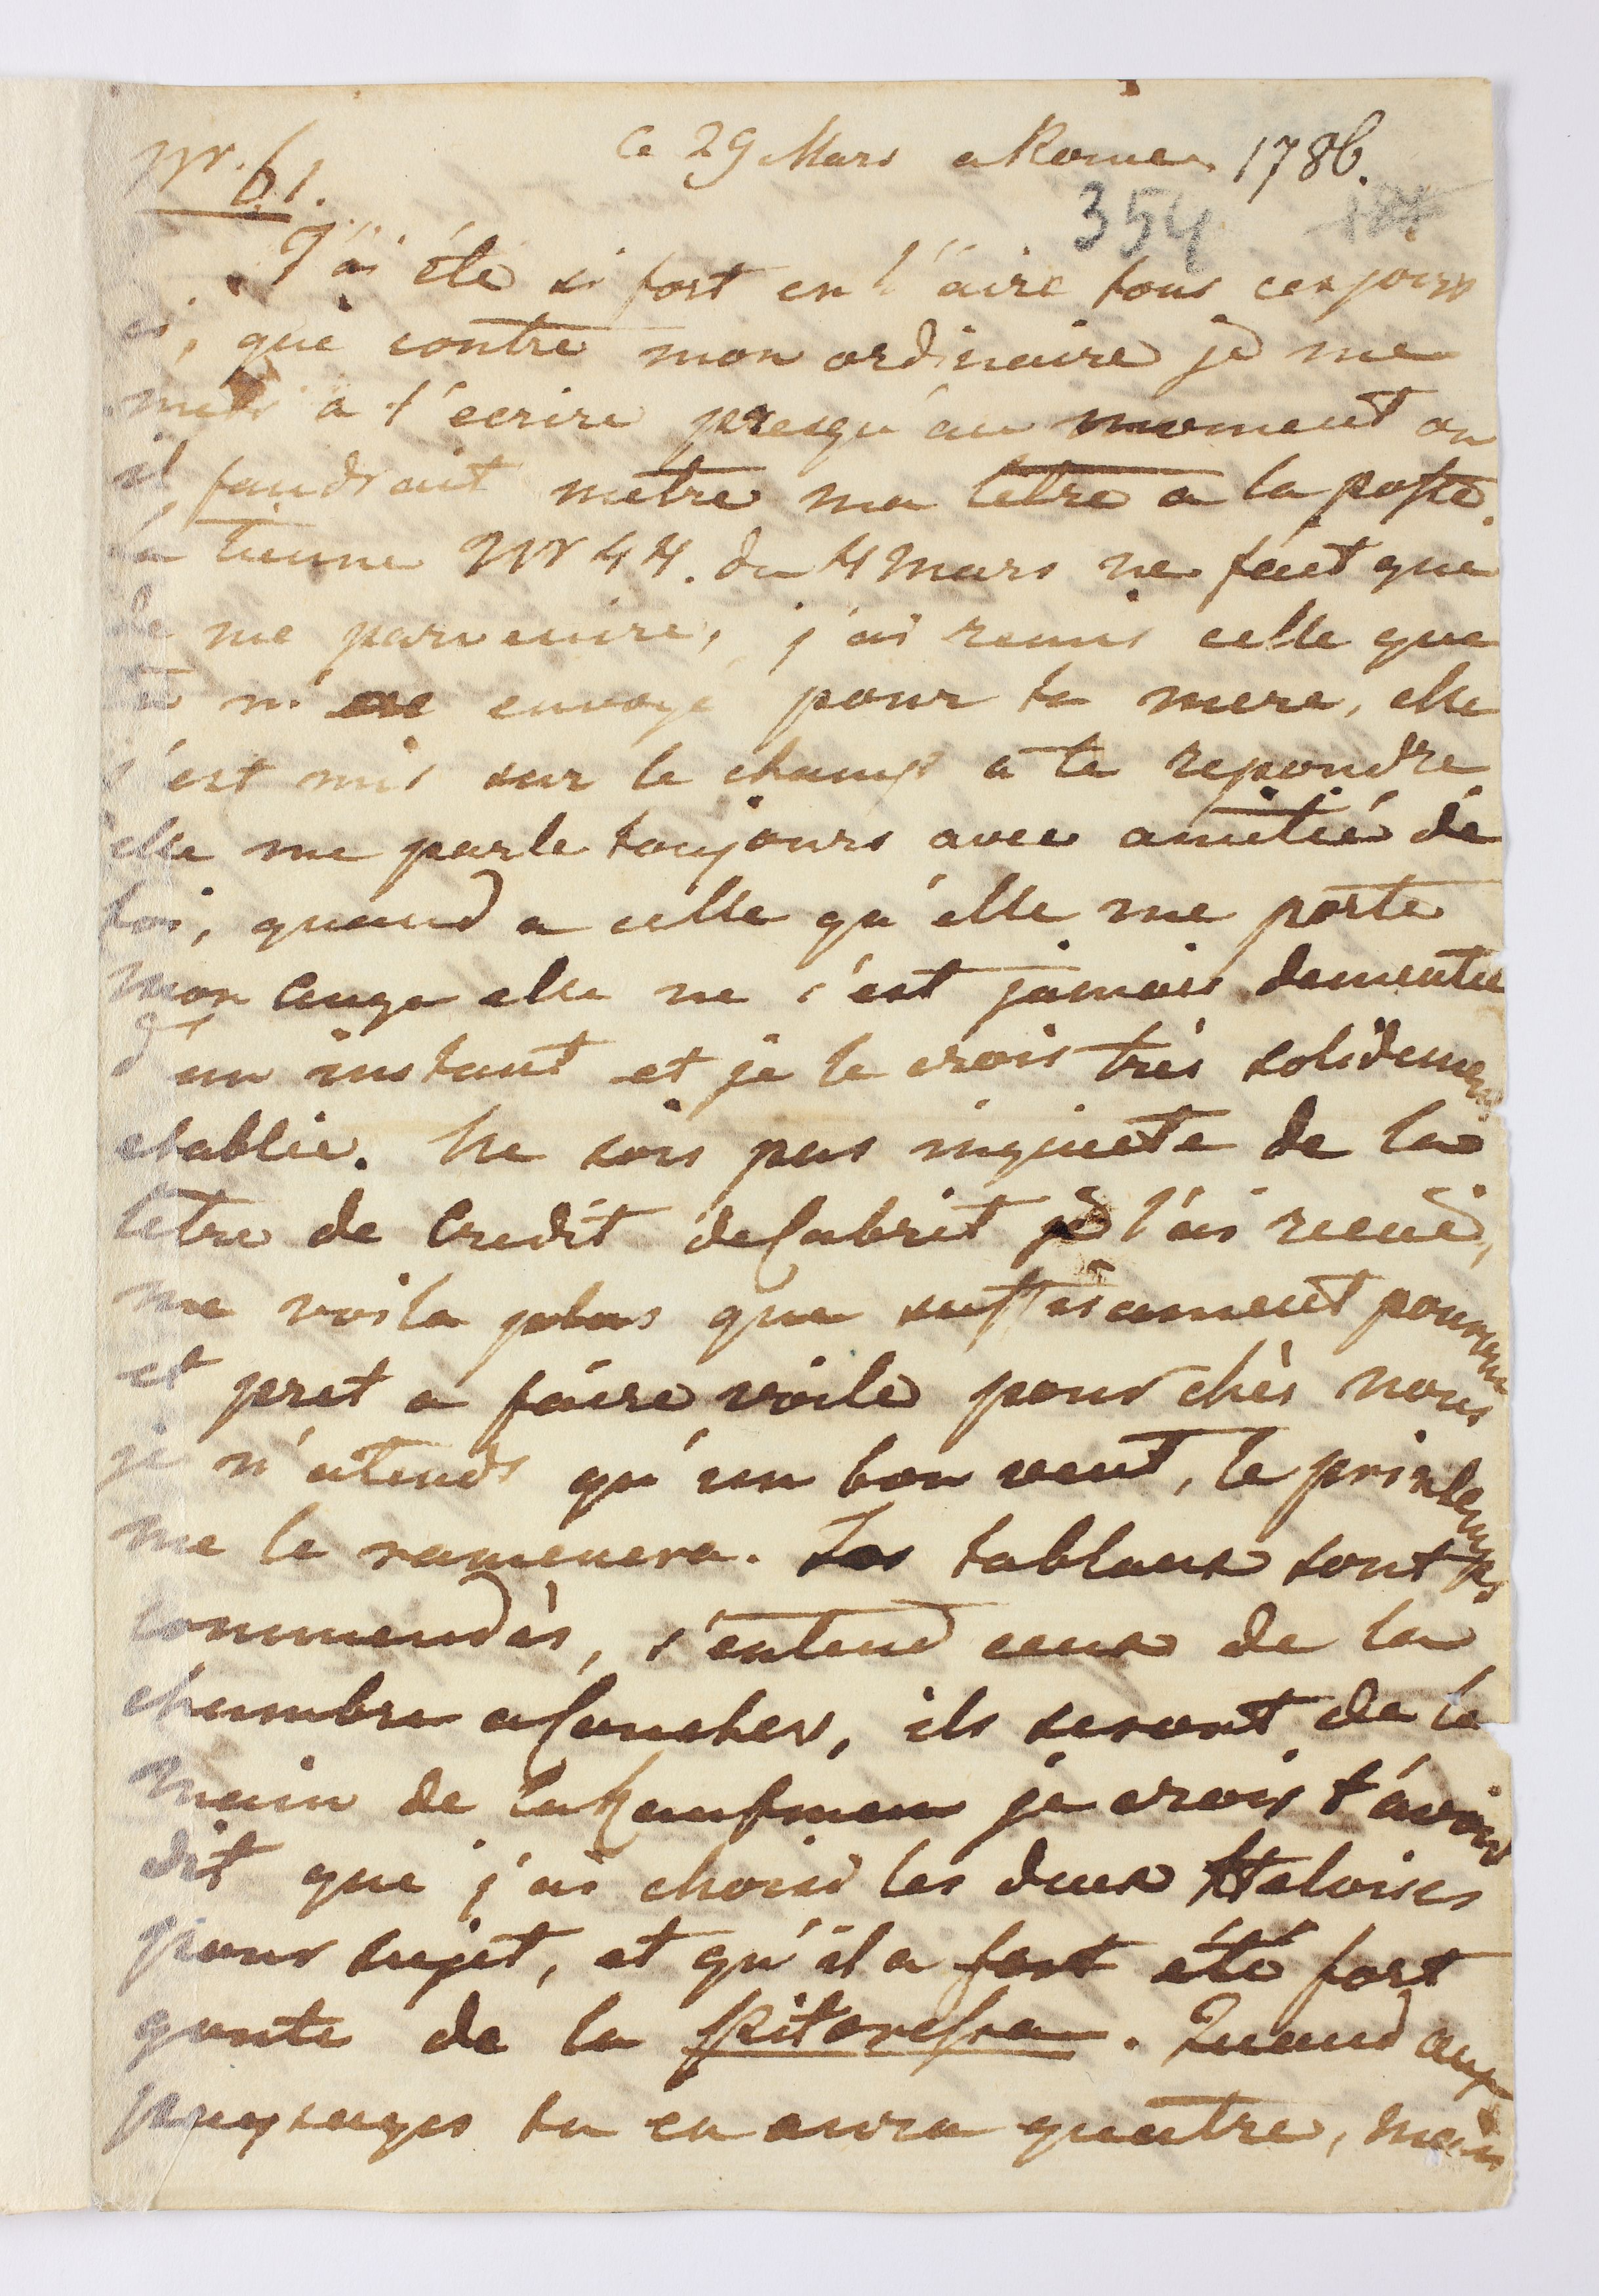 Nr. 61.
Ce 29 Mars a Rome 1786.
354
J'ai éte si fort en l'aire tous ces jours
ci, que contre mon ordinaire je me
mets a t'ecrire presqu'au moment ou
il faudrait metre ma letre a la poste.
La tienne Nr 44. du 4 Mars ne fait que
de me parvenire, j'ai remis celle que
tu m'as envoyé pour ta mere, elle
s'est mis sur le champ a te repondre
elle me parle toujours avec amitié de
toi, quand a celle qu'elle me porte
mon ange elle ne s'est jamais dementie
d'un instant et je le crois très solidement
etablie. Ne sois pas inquiete de la
letre de Credit de Cabrit je l'ai recue,
me voila plus que suffisament pourvu
et pret a faire voile pour chès nous
je n'atends qu'un bon vent, le printemps
me le ramenera. Les tableaux sont
commendès, s'entend ceux de la
chambre a Coucher, ils seront de la
main de la Kaufman je crois t'avoir
dit que j'ai choisi les deux Heloises
pour sujet, et qu'il a fort été fort
gouté de la pitoresca. Quand aux
paysages tu en aura quatre, mais